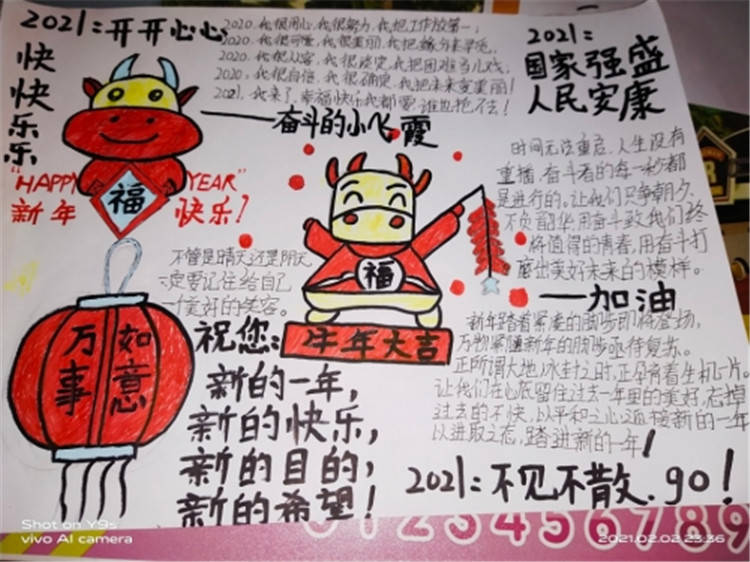 2021:开开心心
快快乐乐
2020,我很用心,我很努力,我把工作放第一;
2020,我很可爱,我很美丽,我把
2020,我很从容,我很淡定,我把困难当儿戏;
2020,我很自信,我很确定,我把未来变美丽!
2021,我来了,幸福快乐我都要,谁也抢不去!
——奋斗的小飞霞
2021:
国家强盛
人民安康
"HAPPY YEAR"
新年 快乐!
福
时间无法重启,人生没有
重播,奋斗着的每一秒都
是进行的。让我们只争朝夕,
不负韶华,用奋斗致我们终
将值得的青春,用奋斗打
磨出美好未来的模样。
——加油
不管是晴天还是阴天
一定要记住给自己
一个美好的笑容。
福
牛年大吉
万事
如意
祝您:
新的一年,
新的快乐,
新的目的;
新的希望!
新年踏着紧凑的脚步即将登场,
万物紧随新年的脚步亟待复苏。
正所谓大地冰封之时,正孕育着生机一片。
让我们在心底留住过去一年里的美好,忘掉
过去的不快,以平和之心迎接新的一年
以进取之态,踏进新的一年!
2021:不见不散.go!
Shot on Y9s
vivo AI camera
0123456789
2021.02.02 23:36